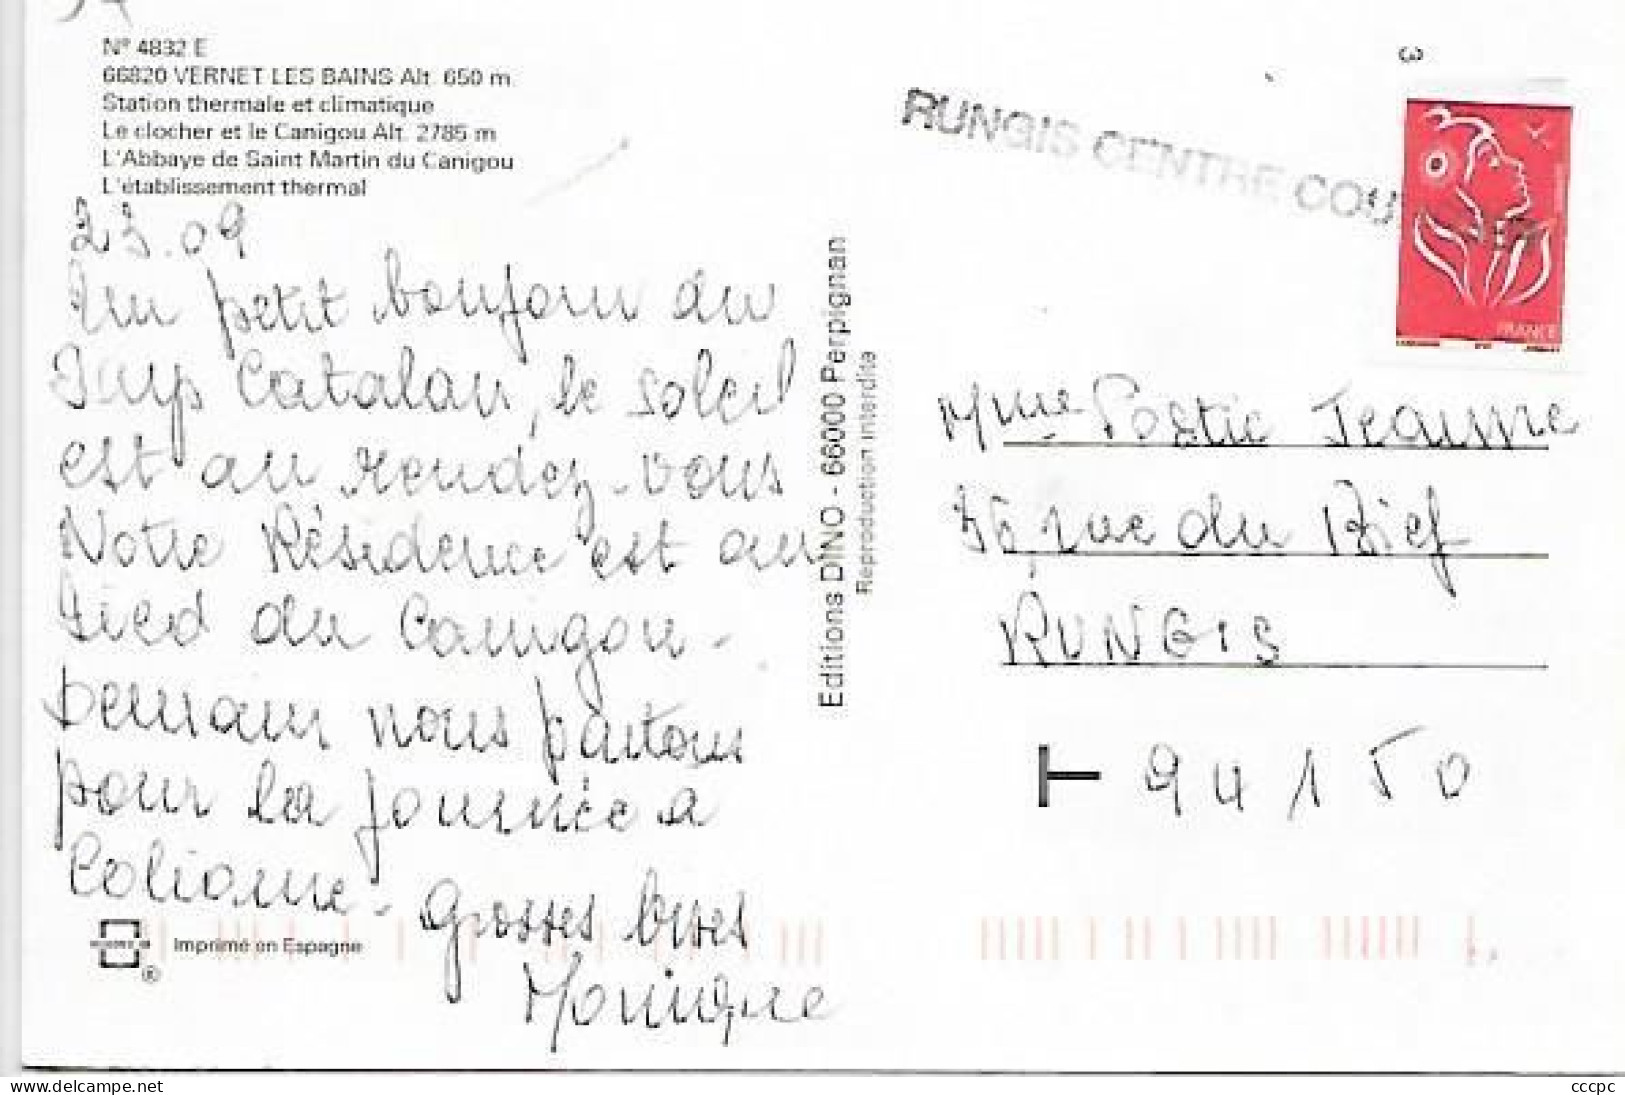 N° 4832 E
66820 VERNET LES BAINS Alt. 650 m
Station thermale et climatique
Le clocher et le Canigou Alt. 2785 m
L'Abbaye de Saint Martin du Canigou
L'établissement thermal
23.09
Un petit bonjour du
Pays Catalan, le soleil
est au rendez-vous
Notre Résidence est au
Pied du Canigou -
Demain nous partons
pour la journée a
Colioure - Grosses bises
Monique
Imprimé en Espagne
Editions DINO - 66000 Perpignan
Reproduction interdite
RUNGIS CENTRE COU
3
FRANCE
Mme Postic Jeanne
36 rue du Bief
RUNGIS
94150
www.delcampe.net
cccpc